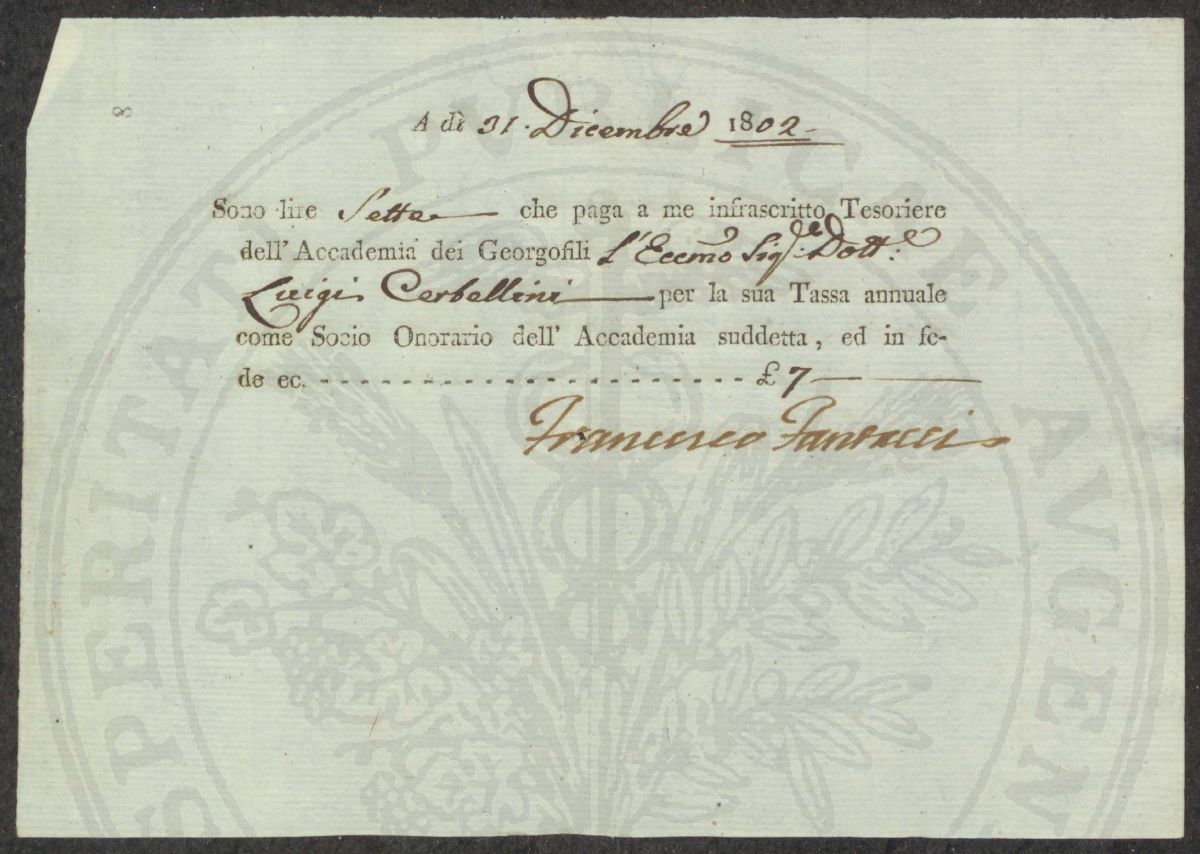 8
A dì 31. Dicembre 1802
Sono lire Sette che paga a me infrascritto Tesoriere
dell' Accademia dei Georgofili l'Eccmo Sigre: Dotte:
Luigi Cerbellini per la sua Tassa annuale
come Socio Onorario dell' Accademia suddetta, ed in fe-
de ec. - - - - - - - - - - - - - - - - - - - - - - - - - £ 7
Francesco Fantacci
SPERITATI PVBLICAE AVGEN